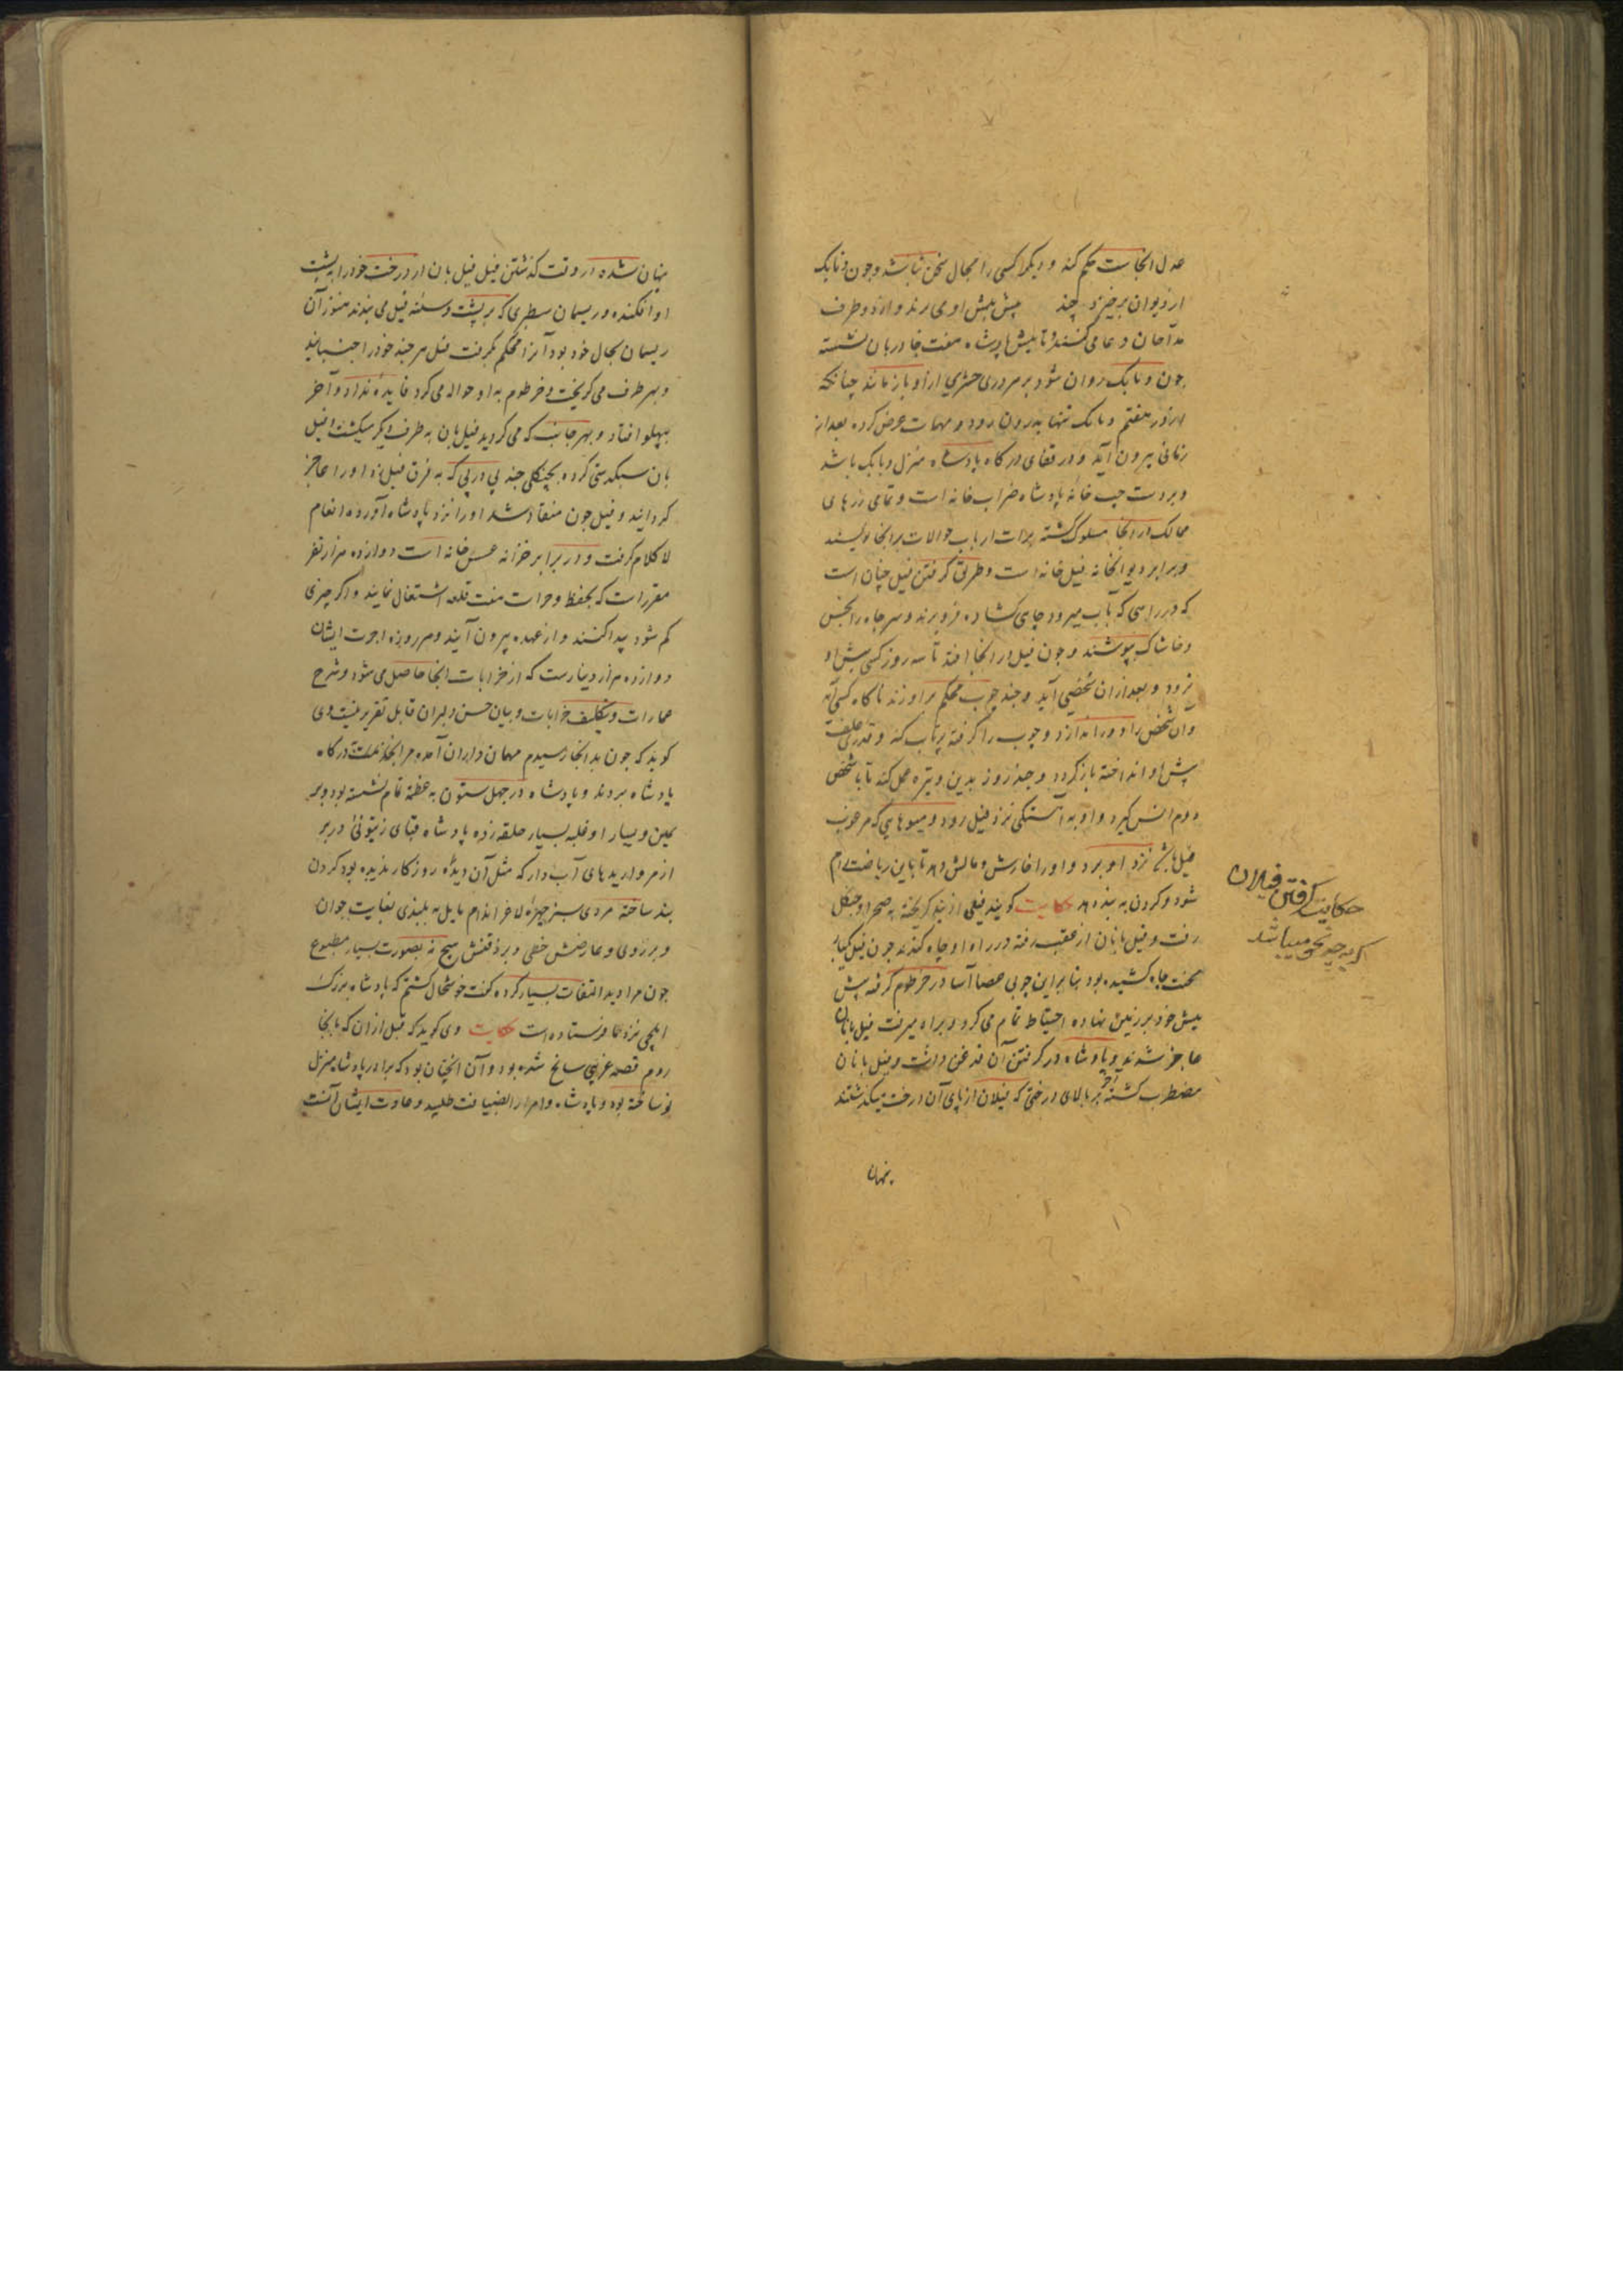 عدل انجاست حکم کند و دیگر کسی را مجال سخن نباشد و چون دنایک
از دیوان برخیزد چند پیش پیش او می برند و از دو طرف
مداحان دعا می کنند تا پیش پادشاه هفت جا دربان نشسته
چون دنایک روان شود بر هر دری حشری از او باز ماند چنانکه
از در هفتم دنایک تنها بدرون رود و مهمات عرض کرده بعد از
زمانی بیرون آید و در قفای درگاه پادشاه منزل دنایک باشد
و بر دست چپ خانه پادشاه ضراب خانه است و تمامی زرهای
ممالک در انجا مسکوک گشته برات ارباب حوالات بر انجا نویسند
و برابر دیوانخانه فیل خانه است و طریق گرفتن فیل چنان است
که در راهی که بآب میرود جای گشاده فرو برند و سر چاه را بخس
و خاشاک بپوشند و چون فیل در انجا افتد تا سه روز کسی پیش او
نرود و بعد از ان شخصی آید و چند چوب محکم بر او زند ناگاه کسی آید
و ان شخص را دور اندازد و چوب را گرفته پرتاب کند و قدری علف
پیش او انداخته باز گردد و چند روز بدین وتیره عمل کند تا با شخص
دوم انس گیرد و او به آهستگی نزد فیل رود و میوهایی که مرغوب
فیل باشد نزد او برد و او را خارش و مالش دهد تا باین ریاضت رام
شود و گردن به بند دهد حکایت گویند فیلی از بند گریخته به صحرا و جنگل
رفت و فیل بانان از عقب رفته در راه او چاه کندند چون فیل یکبار
محنت چاه کشیده بود بنا براین چوبی عصا آسا در خرطوم گرفته پیش
پیش خود بر زمین نهاده احتیاط تمام می کرد و براه میرفت فیل بانان
عاجز شدند و پادشاه در گرفتن آن قدغن داشت و فیل بانان
مضطرب گشته آخر بر بالای درختی که فیلان از پای آن درخت میگذشتند
پنهان
حکایت گرفتن فیلان
که بچه نحو میباشد
پنهان شده در وقت گذشتن فیل فیل بان از درخت خود را به پشت
او افکنده و ریسمان سطبری که بر پشت و سینه فیل می بندند هنوز آن
ریسمان بحال خود بود آنرا محکم بگرفت فیل هر چند خود را جنبانید
و بهر طرف می گریخت و خرطوم به او حواله می کرد فایده نداد و آخر
بپهلو افتاد و بهر جانب که می گردید فیل بان به طرف دیگر میگشت و فیل
بان سبکدستی کرده کجنکی چند پی در پی که به فرق فیل زد او را عاجز
گردانید و فیل چون منقاد شد او را نزد پادشاه آورده انعام
لا کلام گرفت و در برابر خزانه عسس خانه است دوازده هزار نفر
مقررات که بحفظ و حراست هفت قلعه اشتغال نمایند و اگر چیزی
کم شود پیدا کنند و از عهده بیرون آیند و هر روزه اجرت ایشان
دوازده هزار دینارست که از خرابات انجا حاصل می شود و شرح
عمارات و تکلیف خرابات و بیان حسن دلبران قابل تقریر نیست وی
گوید که چون بد انجا رسیدم مهمان داران آمده مرا بخدمت درگاه
پادشاه بردند و پادشاه در چهل ستون به عظمت تمام نشسته بود و بر
یمین و یسار او غلبه بسیار حلقه زده پادشاه قبای زیتونی در بر
از مرواریدهای آب دار که مثل آن دیده روزگار ندیده بود گردن
بند ساخته مردی سبز چهره لاغر اندام مایل به بلندی بغایت جوان
و بر روی و عارضش خطی و بر ذقنش هیچ نه بصورت بسیار مطبوع
چون مرا دید التفات بسیار کرده گفت خوشحال گشتم که پادشاه بزرگ
ایلچی نزد ما فرستاده است حکایت وی گوید که قبل از ان که بانجا
روم قصه غریبی سانح شده بود و آن انچنان بود که برادر پادشاه منزل
نو ساخته بود و پادشاه و امرا را بضیافت طلبید و عادت ایشان آنست